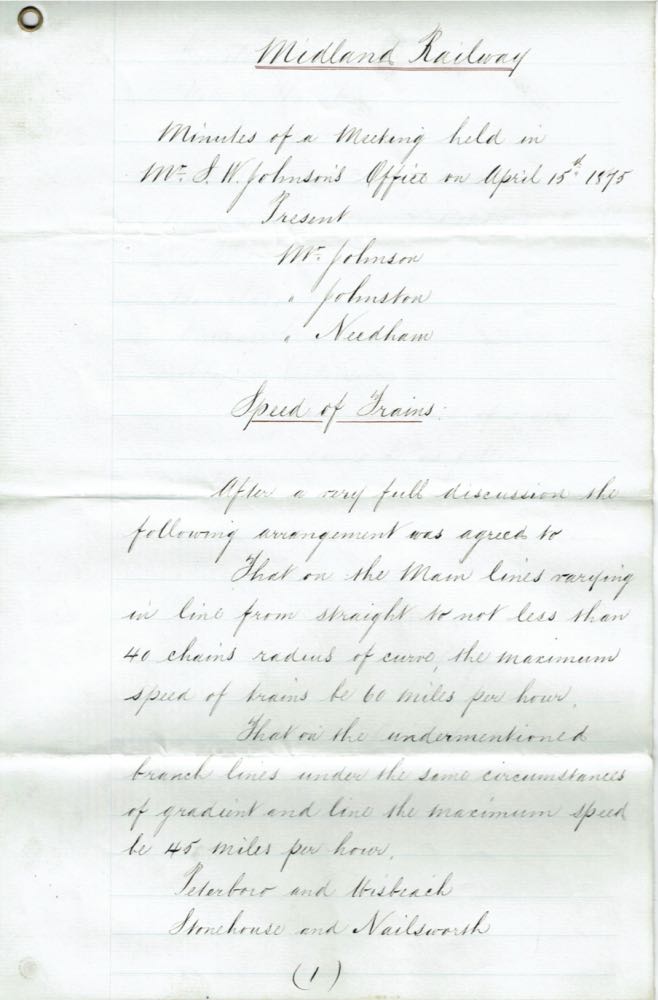 Midland Railway
Minutes of a Meeting held in
Mr. S. W. Johnson's Office on April 15th 1875
Present
Mr. Johnson
" Johnston
" Needham
Speed of Trains.
After a very full discussion the
following arrangement was agreed to
That on the Main lines varying
in line from straight to not less than
40 chains radius of curve, the maximum
speed of trains be 60 miles per hour.
That on the undermentioned
branch lines under the same circumstances
of gradient and line the maximum speed
be 45 miles per hour.
Peterboro and Wisbeach
Stonehouse and Nailsworth
(1)